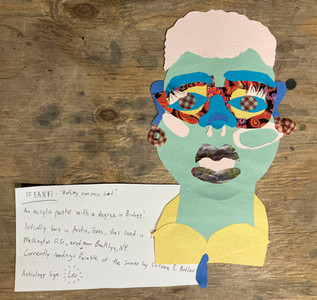 IFEANYI: "Nothing can pass God"
An acrylic painter with a degree in Biology!
Initially born in Austin, Texas, she's lived in
Washington D.C., and now Brooklyn, NY.
Currently reading: Parable of the Sower by Octavia E. Butler
Astrology Sign: Leo